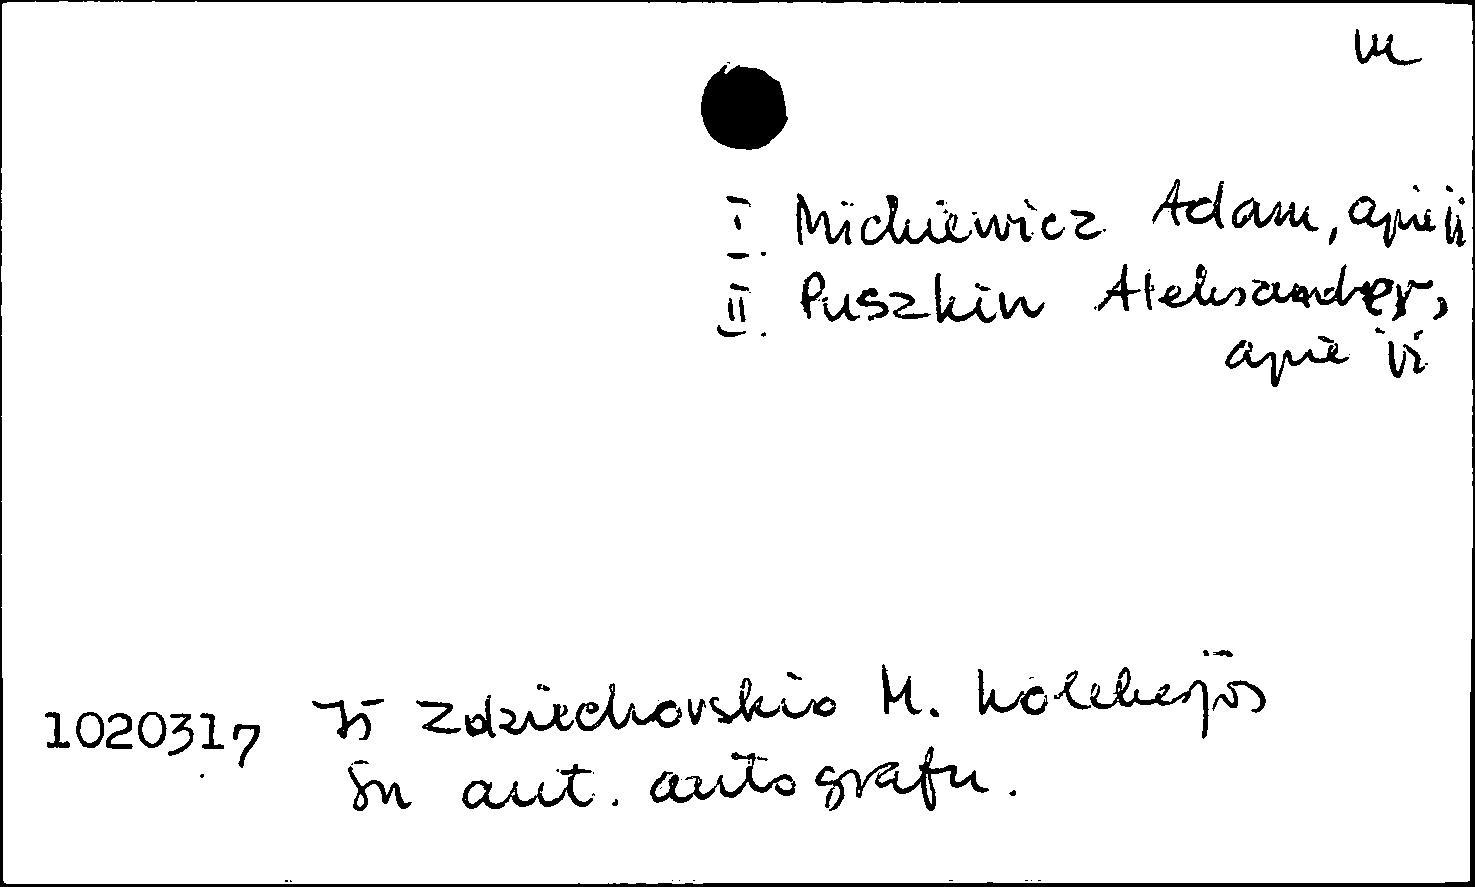 m
I. Mickiewicz Adam, apie jį
II. Puszkin Aleksander,
apie jį
1020317 Iš Zdziechovskio M. kolekcijos
Su aut. autografu.